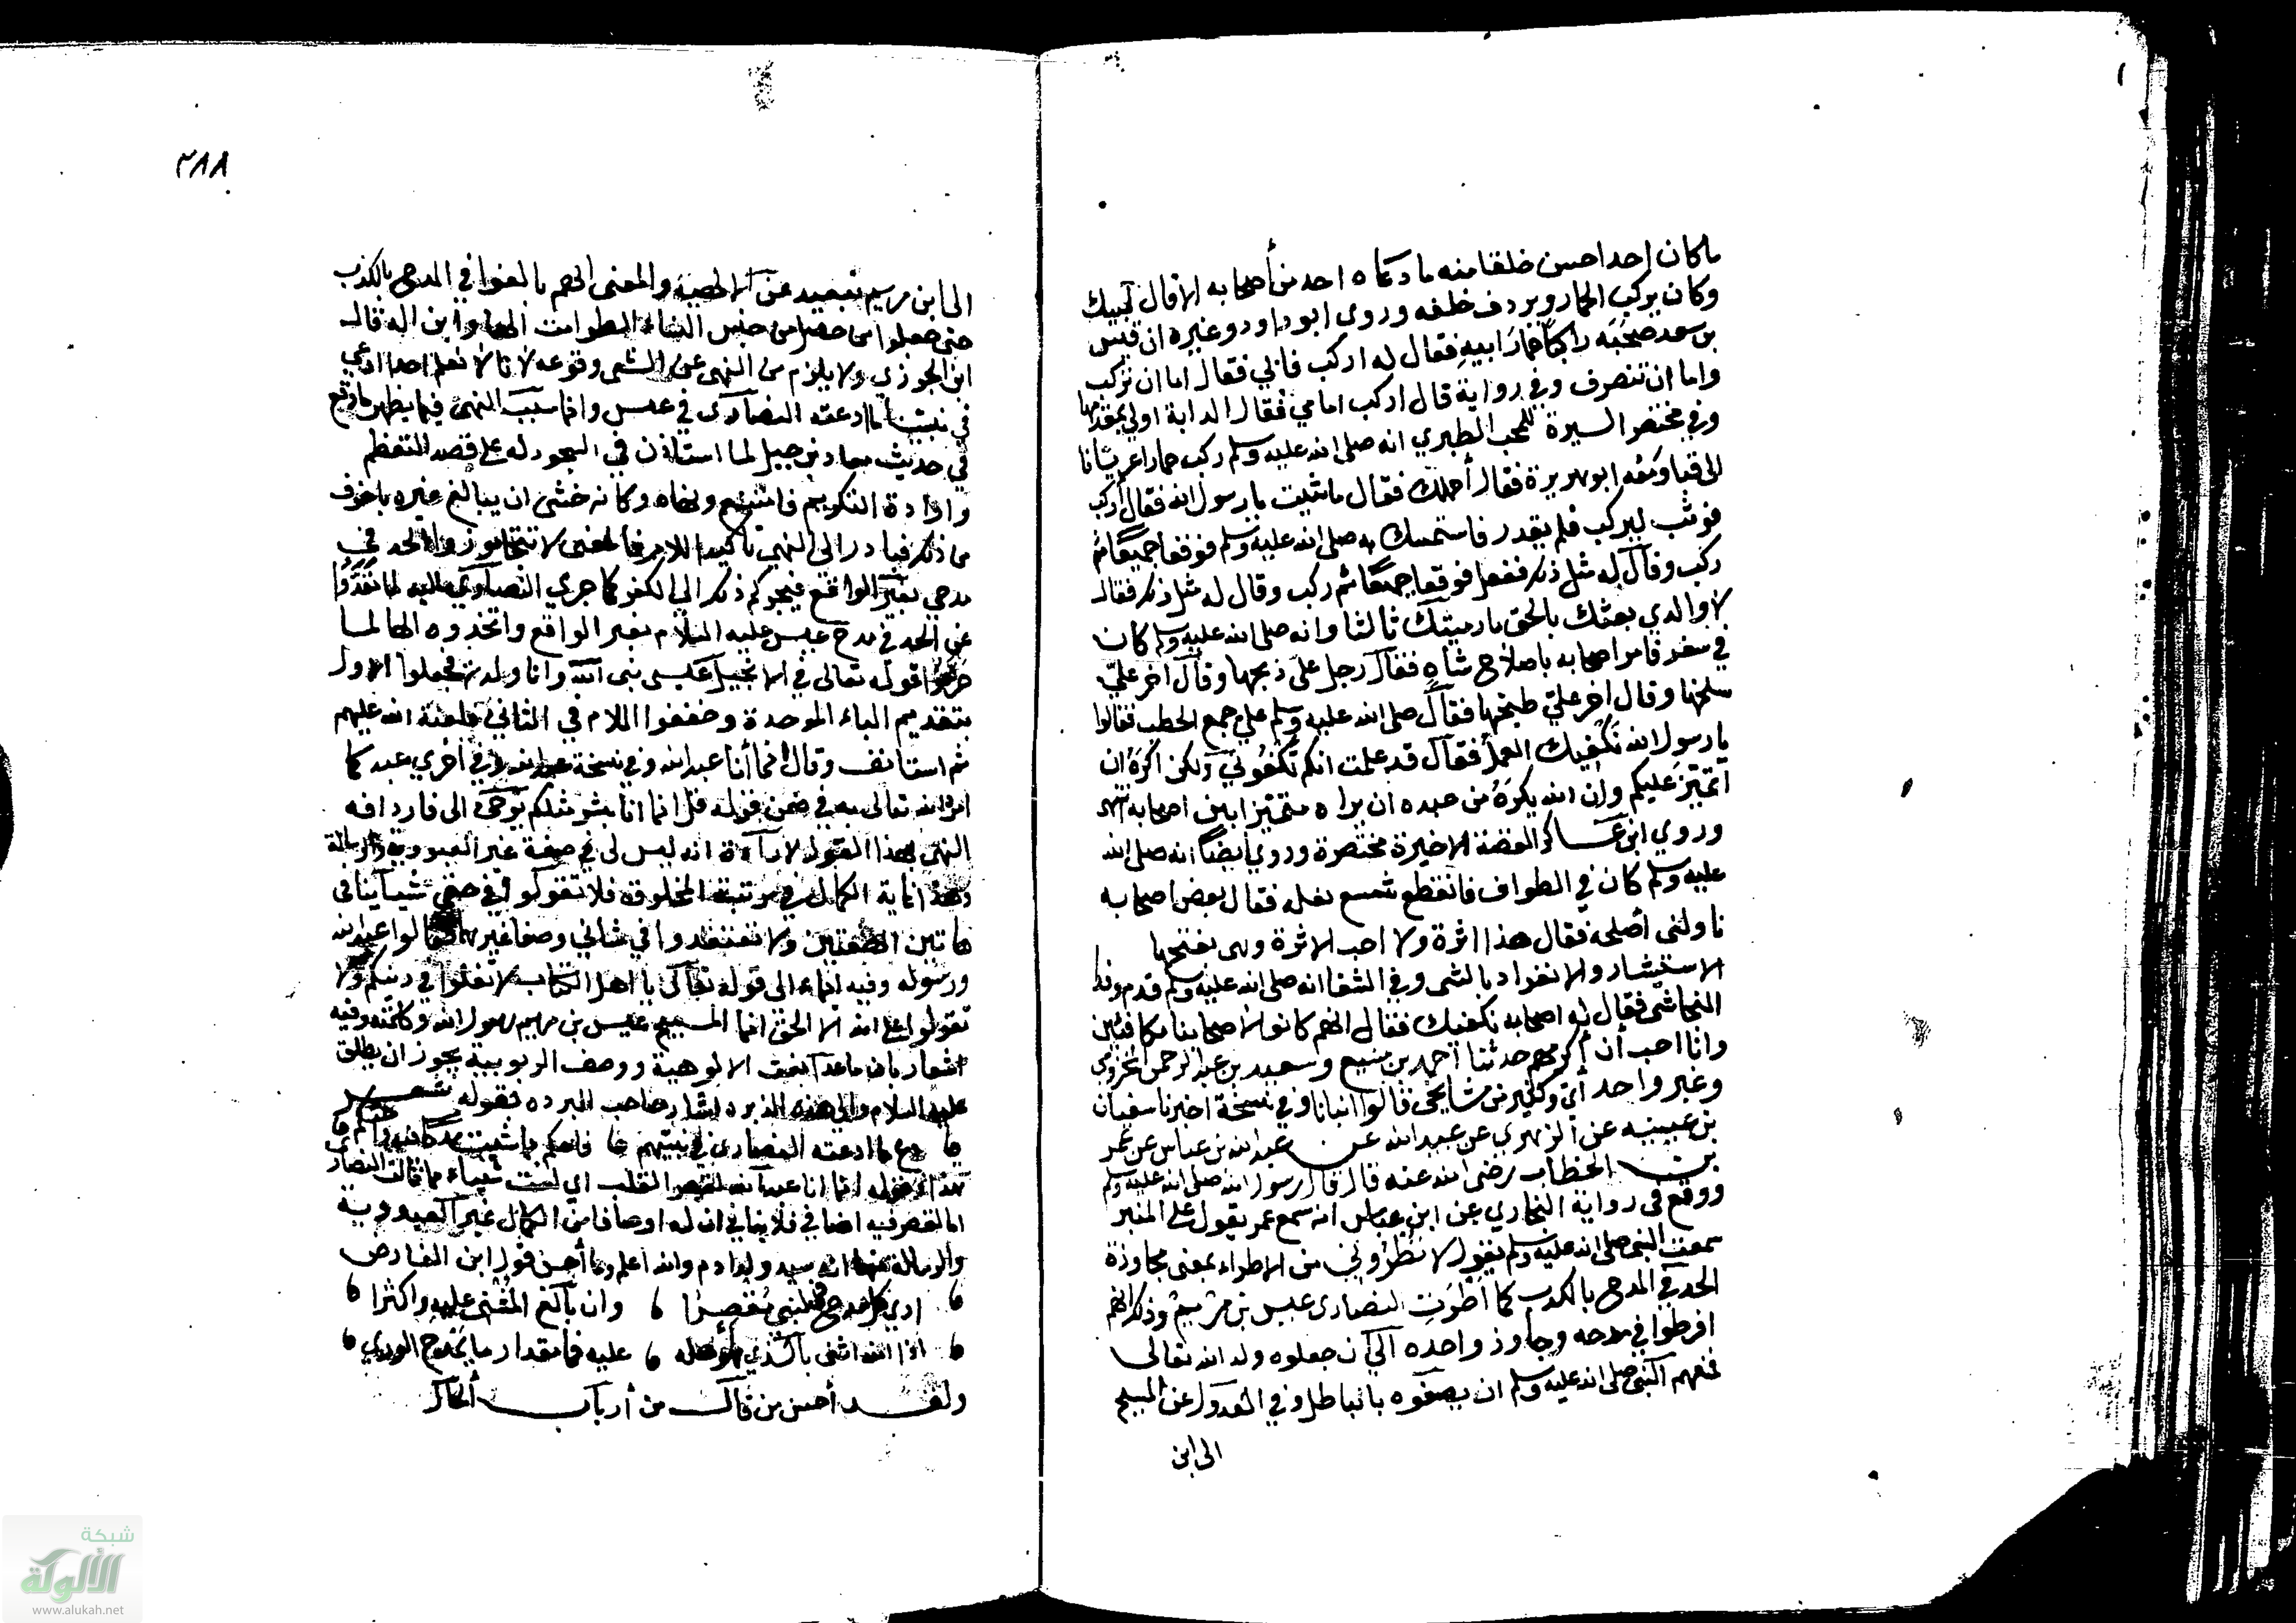 ما كان احد احسن خلقا منه ما دعاه احد من أصحابه الا قال لبيك
وكان يركب الحمار ويردف خلفه وروى ابو داود وغيره ان قيس
بن سعد صحبه راكبًا حمار أبيه فقال له اركب فابي فقال اما ان تركب
واما ان تنصرف وفي رواية قال اركب امامي فقال الدابة اولى بمقدمها
وفي مختصر السيرة للمحب الطبري انه صلى الله عليه وسلم ركب حمارا عريانا
الى قبا ومعه ابو هريرة فقال أحملك فقال ما شيت يا رسول الله فقال اركب
فوثب ليركب فلم يقدر فاستمسك به صلى الله عليه وسلم فوقعا جميعًا ثم
ركب وقال له مثل ذلك ففعل فوقعا جميعًا ثم ركب وقال له مثل ذلك فقال
لا والذي بعثك بالحق ما رميتك ثالثا وانه صلى الله عليه وسلم كان
في سفر فامر اصحابه باصلاح شاه فقال رجل على ذبحها وقال اخر علي
سلخها وقال اخر علي طبخها فقال صلى الله عليه وسلم علي جمع الحطب فقالوا
يا رسول الله نكفيك العمل فقال قد علمت انكم تكفوني ولكن اكره ان
اتميز عليكم وان الله يكره من عبده ان يراه متميزا بين اصحابه
وروي ابن عساكر القصة الاخيرة مختصرة وروي ايضًا انه صلى الله
عليه وسلم كان في الطواف فانقطع شسع نعله فقال بعض اصحابه
ناولنى أصلحه فقال هذا اثرة ولا احب الاثرة وهى بفتحها
الاستيشار والانفراد بالشى وفي الشفا انه صلى الله عليه وسلم قدم وفد
النجاشى فقال له اصحابه نكفيك فقال انهم كانوا لاصحابنا مكافئين
وانا احب أن أكرمهم حدثنا احمد بن منيع وسعيد بن عبد الرحمن المخزومي
وغير واحد أي وكثير من مشايخى قالوا انبانا وفي نسخة اخبرنا سفيان
بن عيينه عن الزهري عن عبيد الله عن عبد الله بن عباس عن عمر
بن الخطاب رضى الله عنه قال قال رسول الله صلى الله عليه وسلم
ووقع في رواية البخاري عن ابن عباس انه سمع عمر يقول على المنبر
سمعت النبى صلى الله عليه وسلم يقول لا تطروني من الاطراء بمعنى مجاوزة
الحد في المدح بالكذب كما أطرت النصارى عيسى بن مريم وذلك انهم
افرطوا في مدحه وجاوز واحده الي ان جعلوه ولد الله تعالى
فمنعهم النبى صلى الله عليه وسلم ان يصفوه بالباطل وفي العدول عن المسيح
الى ابن
٢٨٨
الى ابن مريم تبعيد عن الالهية والمعنى انهم بالغوا في المدح بالكذب
حتى جعلوا من حصل من جنس النساء الطوامث الها وابن اله قال
ابن الجوزي ولا يلزم من النهى عن الشى وقوعه لانا لا نعلم احدا ادعى
في نبينا ما ادعته النصارى في عيسى وانما سبب النهى فيما يظهر ما وقع
في حديث معاذ بن جبل لما استاذن في السجود له على قصد التعظيم
وارادة التكريم فامتنع ونهاه وكانه خشى ان يبالغ غيره باخوف
من ذلك فبادر الى النهى تاكيدا للامر فالمعنى لا تتجاوزوا الحد في
مدحي بغير الواقع فيجركم ذلك الى الكفر كما جري النصارى عليه لما تعدوا
عن الحد في مدح عيسى عليه السلام بغير الواقع واتخذوه الها لما
حرفوا قوله تعالى في الانجيل عيسى نبى الله وانا ولدته فجعلوا الاول
بتقديم الباء الموحدة وخففوا اللام في الثاني فلعنة الله عليهم
ثم استانف وقال انما أنا عبد الله وفي نسخة عبد لله وفي أخري عبد كما
امر الله تعالى به في ضمن قوله قل انما انا بشر مثلكم يوحى الى فاردافه
النهى بهذا القول لارادة انه ليس لى في صفة غير العبودية والرسالة
وهذا غاية الكمال في مرتبة المخلوق فلا تقولوا في حقي شيئا ينافى
هاتين الصفتين ولا تعتقدوا في شاني وصفا غيرهما فقولوا عبد الله
ورسوله وفيه ايماء الى قوله تعالى يا اهل الكتاب لا تغلوا في دينكم ولا
تقولوا على الله الا الحق انما المسيح عيسى بن مريم رسول الله وكلمته وفيه
اشعار بان ما عدا نعت الالوهية ووصف الربوبية يجوز ان يطلق
عليه السلام والى هذه الزبده اشار صاحب البرده بقوله شعر
دع ما ادعته النصارى في نبيهم واحكم بما شيت مدحا فيه واحتكم
هذا وقوله انما انا عبد الله لقصر القلب اي لست شياء مما قالت النصارى
اما القصر فيه اضافي فلا ينافي ان له اوصافا من الكمال غير العبودية
والرسالة منها انه سيد ولد ادم والله اعلم وما أحسن قول ابن الفارض
ارى كل مدح في النبي مقصرا وان بالغ المثنى عليه واكثرا
اذا الله اثنى بالذي هو أهله عليه فما مقدار ما يمدح الورى
ولقد أحسن من قال من أرباب الحال
شبكة
الألوكة
www.alukah.net